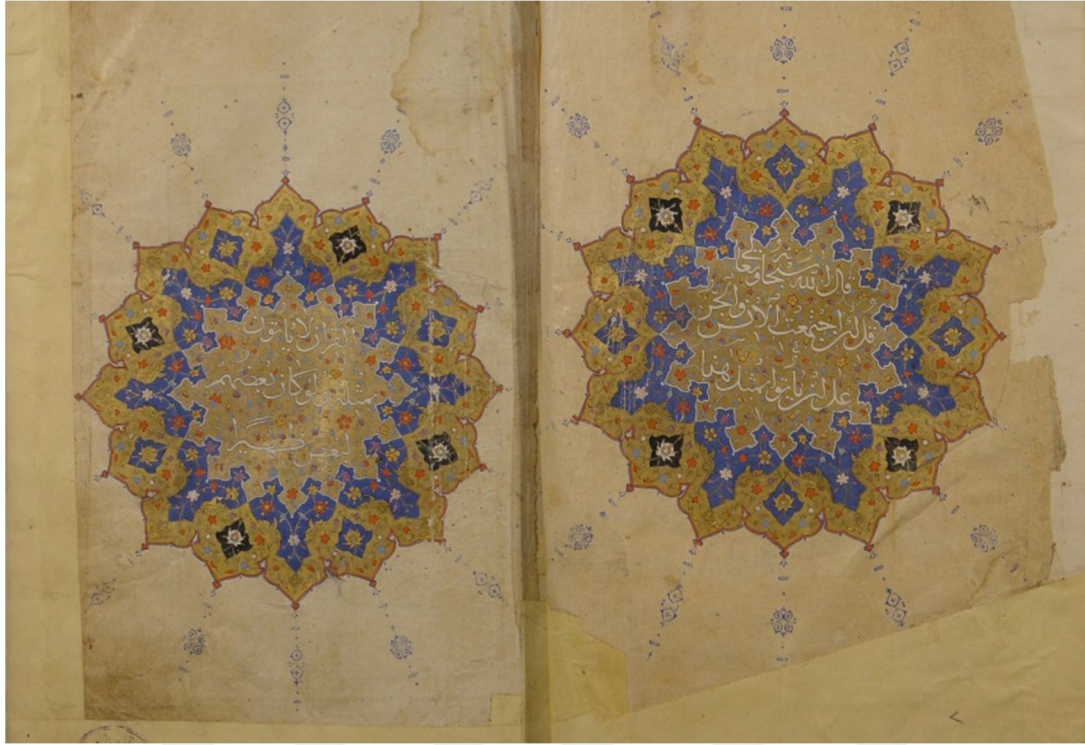 قال الله سبحانه وتعالى
قل لئن اجتمعت الانس والجن
على ان ياتوا بمثل هذا
القران لا ياتون
بمثله ولو كان بعضهم
لبعض ظهيرا